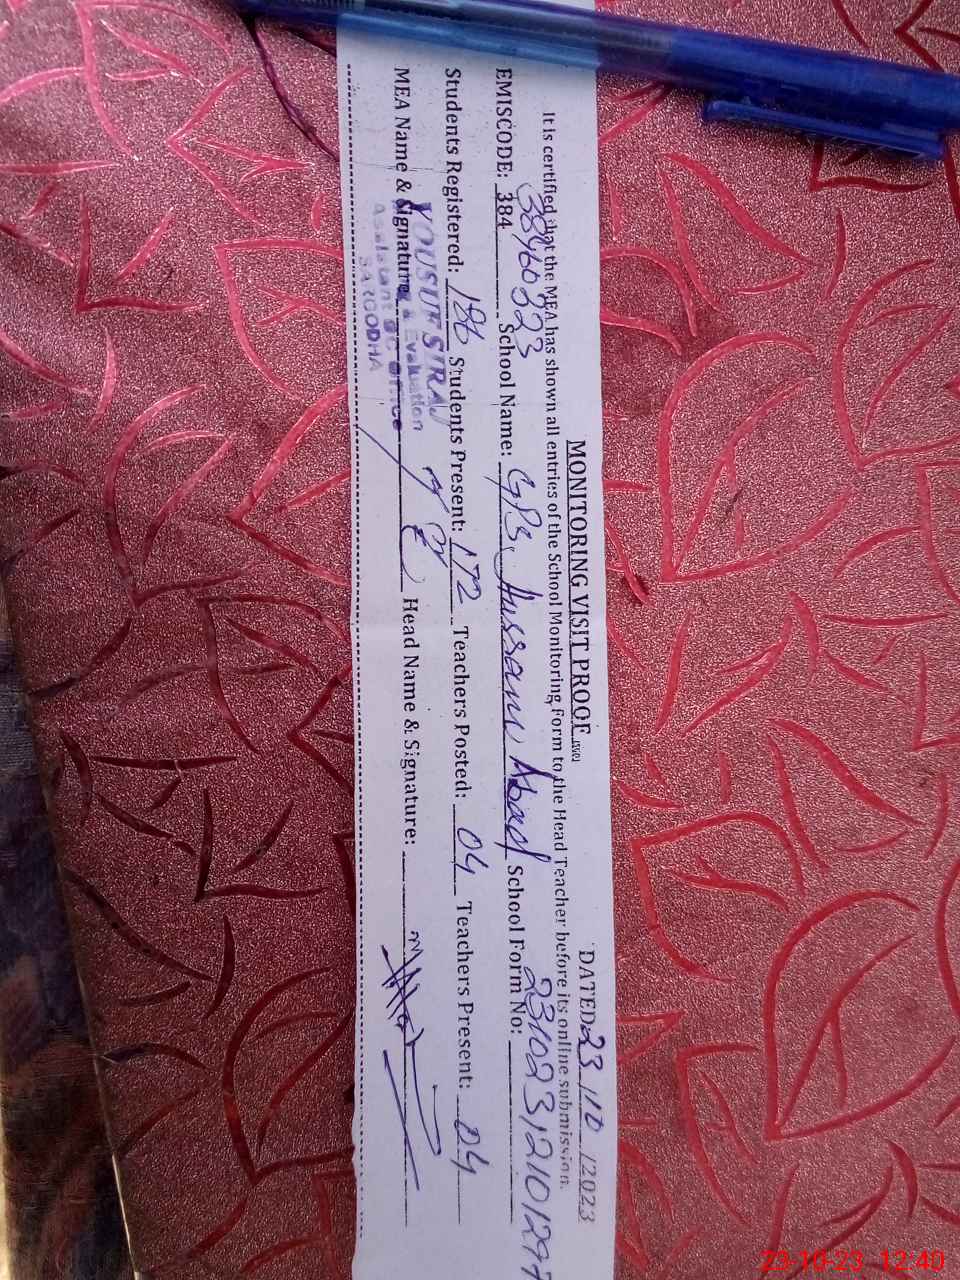 MONITORING VISIT PROOF DATED 23/10/2023
It is certified that the MEA has shown all entries of the School Monitoring Form to the Head Teacher before its online submission.
EMISCODE: 384 38460323 School Name: GPS, Hussain Abad School Form No: 23102312101297
Students Registered: 186 Students Present: 172 Teachers Posted: 04 Teachers Present: 04
MEA Name & Signature: Head Name & Signature:
YOUSUF SIRAJ
& Evaluation
Assistant DC Office
SARGODHA
23-10-23 12:40